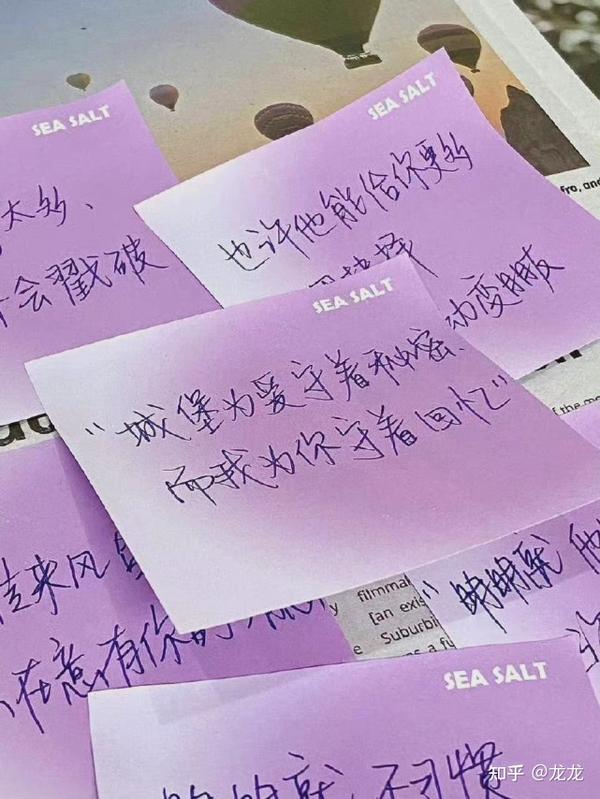 SEA SALT
SEA SALT
也许他能给你更多
动变成朋友
太多、
会戳破
SEA SALT
“城堡为爱守着秘密、
而我为你守着回忆”
来风
在意有你的
filmmak
[an exis
Suburbi
s a fu
of the mo
fro, and
“明明就他
SEA SALT
就不习惯
知乎 @龙龙